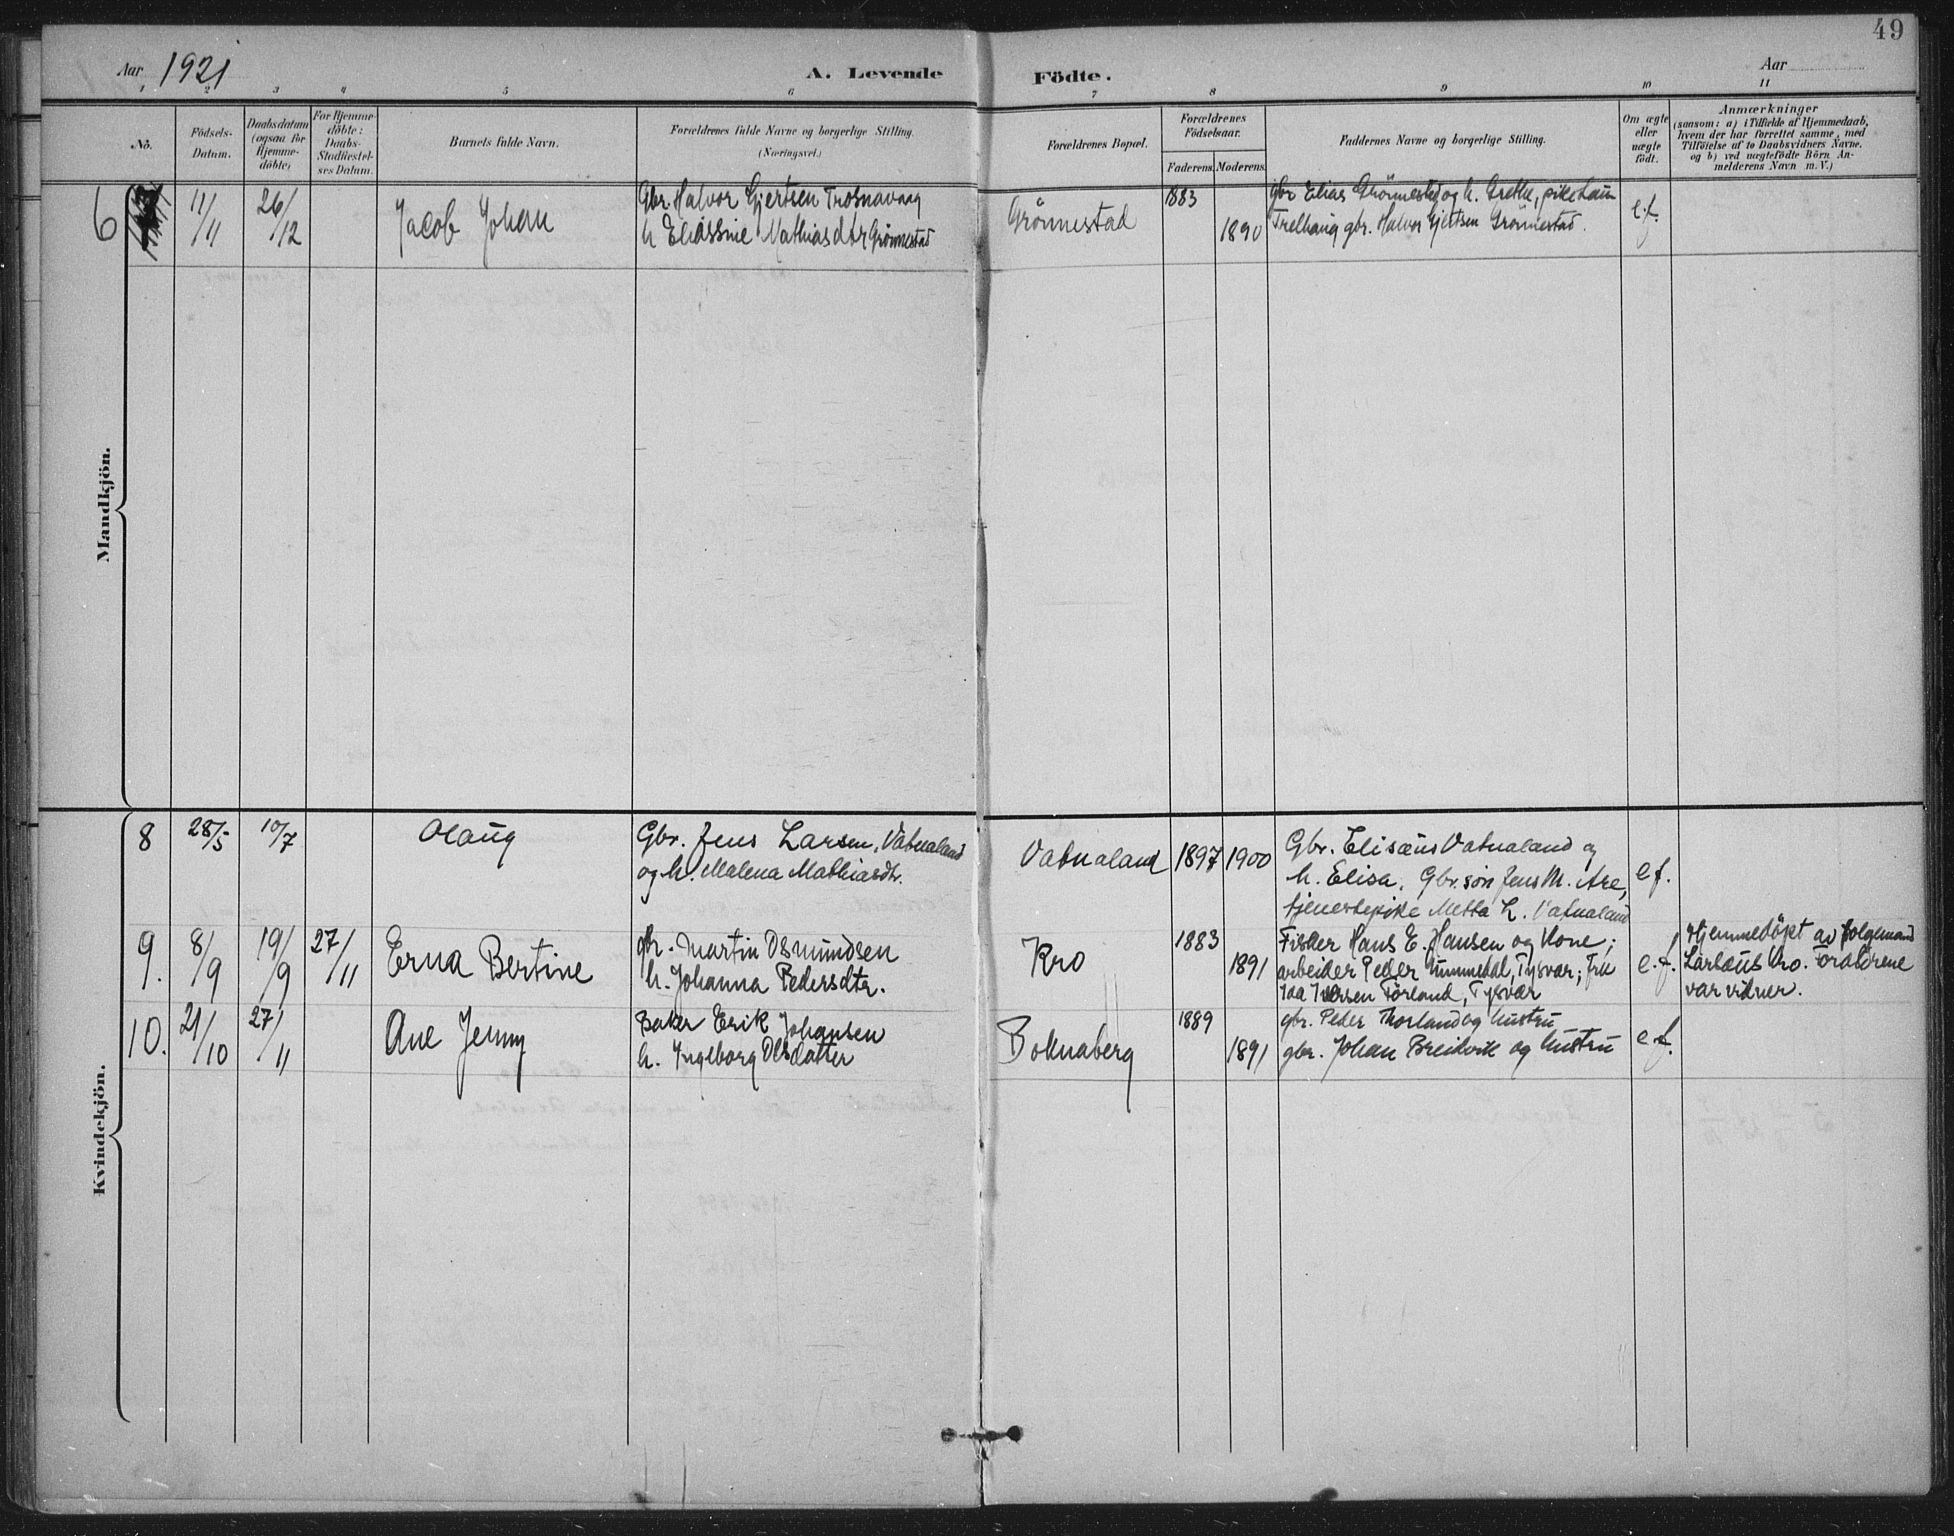 49
Aar 1921
A. Levende Födte.
Aar
1 2 3 4 5 6 7 8 9 10 11
No.
Födsels-Datum.
Daabsdatum (ogsaa for Hjemme-döbte)
For Hjemme-döbte: Daabs-Stadfæstel-ses Datum.
Barnets fulde Navn.
Forældrenes fulde Navne og borgerlige Stilling.
(Næringsvei.)
Forældrenes Bopæl.
Forældrenes Födselsaar.
Faderens. Moderens.
Faddernes Navne og borgerlige Stilling.
Om ægte eller uægte födt.
Anmærkninger
(saasom: a) i Tilfælde af Hjemmedaab,
hvem der har forrettet samme, med
Tilföielse af to Daabsvidners Navne,
og b) ved uægtefödte Börn An-
melderens Navn m. V.)
Mandkjön.
6 11/11 26/12 Jacob Johan
Gbr Halvor Gjertsen Trosnavaag
h Eliassine Mathiasdtr Grönnestad
Grönnestad
1883
1890
Gbr Elias Grönnestad og h. Grethe, pike
Trelhaug gbr. Halvor Gjertsen Grönnestad.
e.f.
Kvindekjön.
8 28/5 10/7 Olaug
Gbr. Jens Larsen, Vatnaland
og h. Malena Mathiasdtr.
Vatnaland 1897 1900
Gbr. Elisæus Vatnaland og
h. Elisa. Gbr.søn Jens M. Are,
tjenestepike Metta L. Vatnaland
e f.
9. 8/9 19/9 27/11 Erna Bertine
gbr. Martin Osmundsen
h. Johanna Pedersdtr.
Kro
1883
1891
Fisker Hans E. Hansen og Kone;
arbeider Peder Gummedal, Tysvær; Frk
Iversen Förland, Tysvær
e.f.
Hjemmedøpt av følgemand
Kro. Forældrene
var vidner.
10. 21/10 27/11 Ane Jenny
Baker Erik Johansen
h. Ingeborg Olsdatter
Boknaberg
1889
1891
gbr. Peder Thorland og hustru
gbr. Johan Breidvik og hustru
e.f.